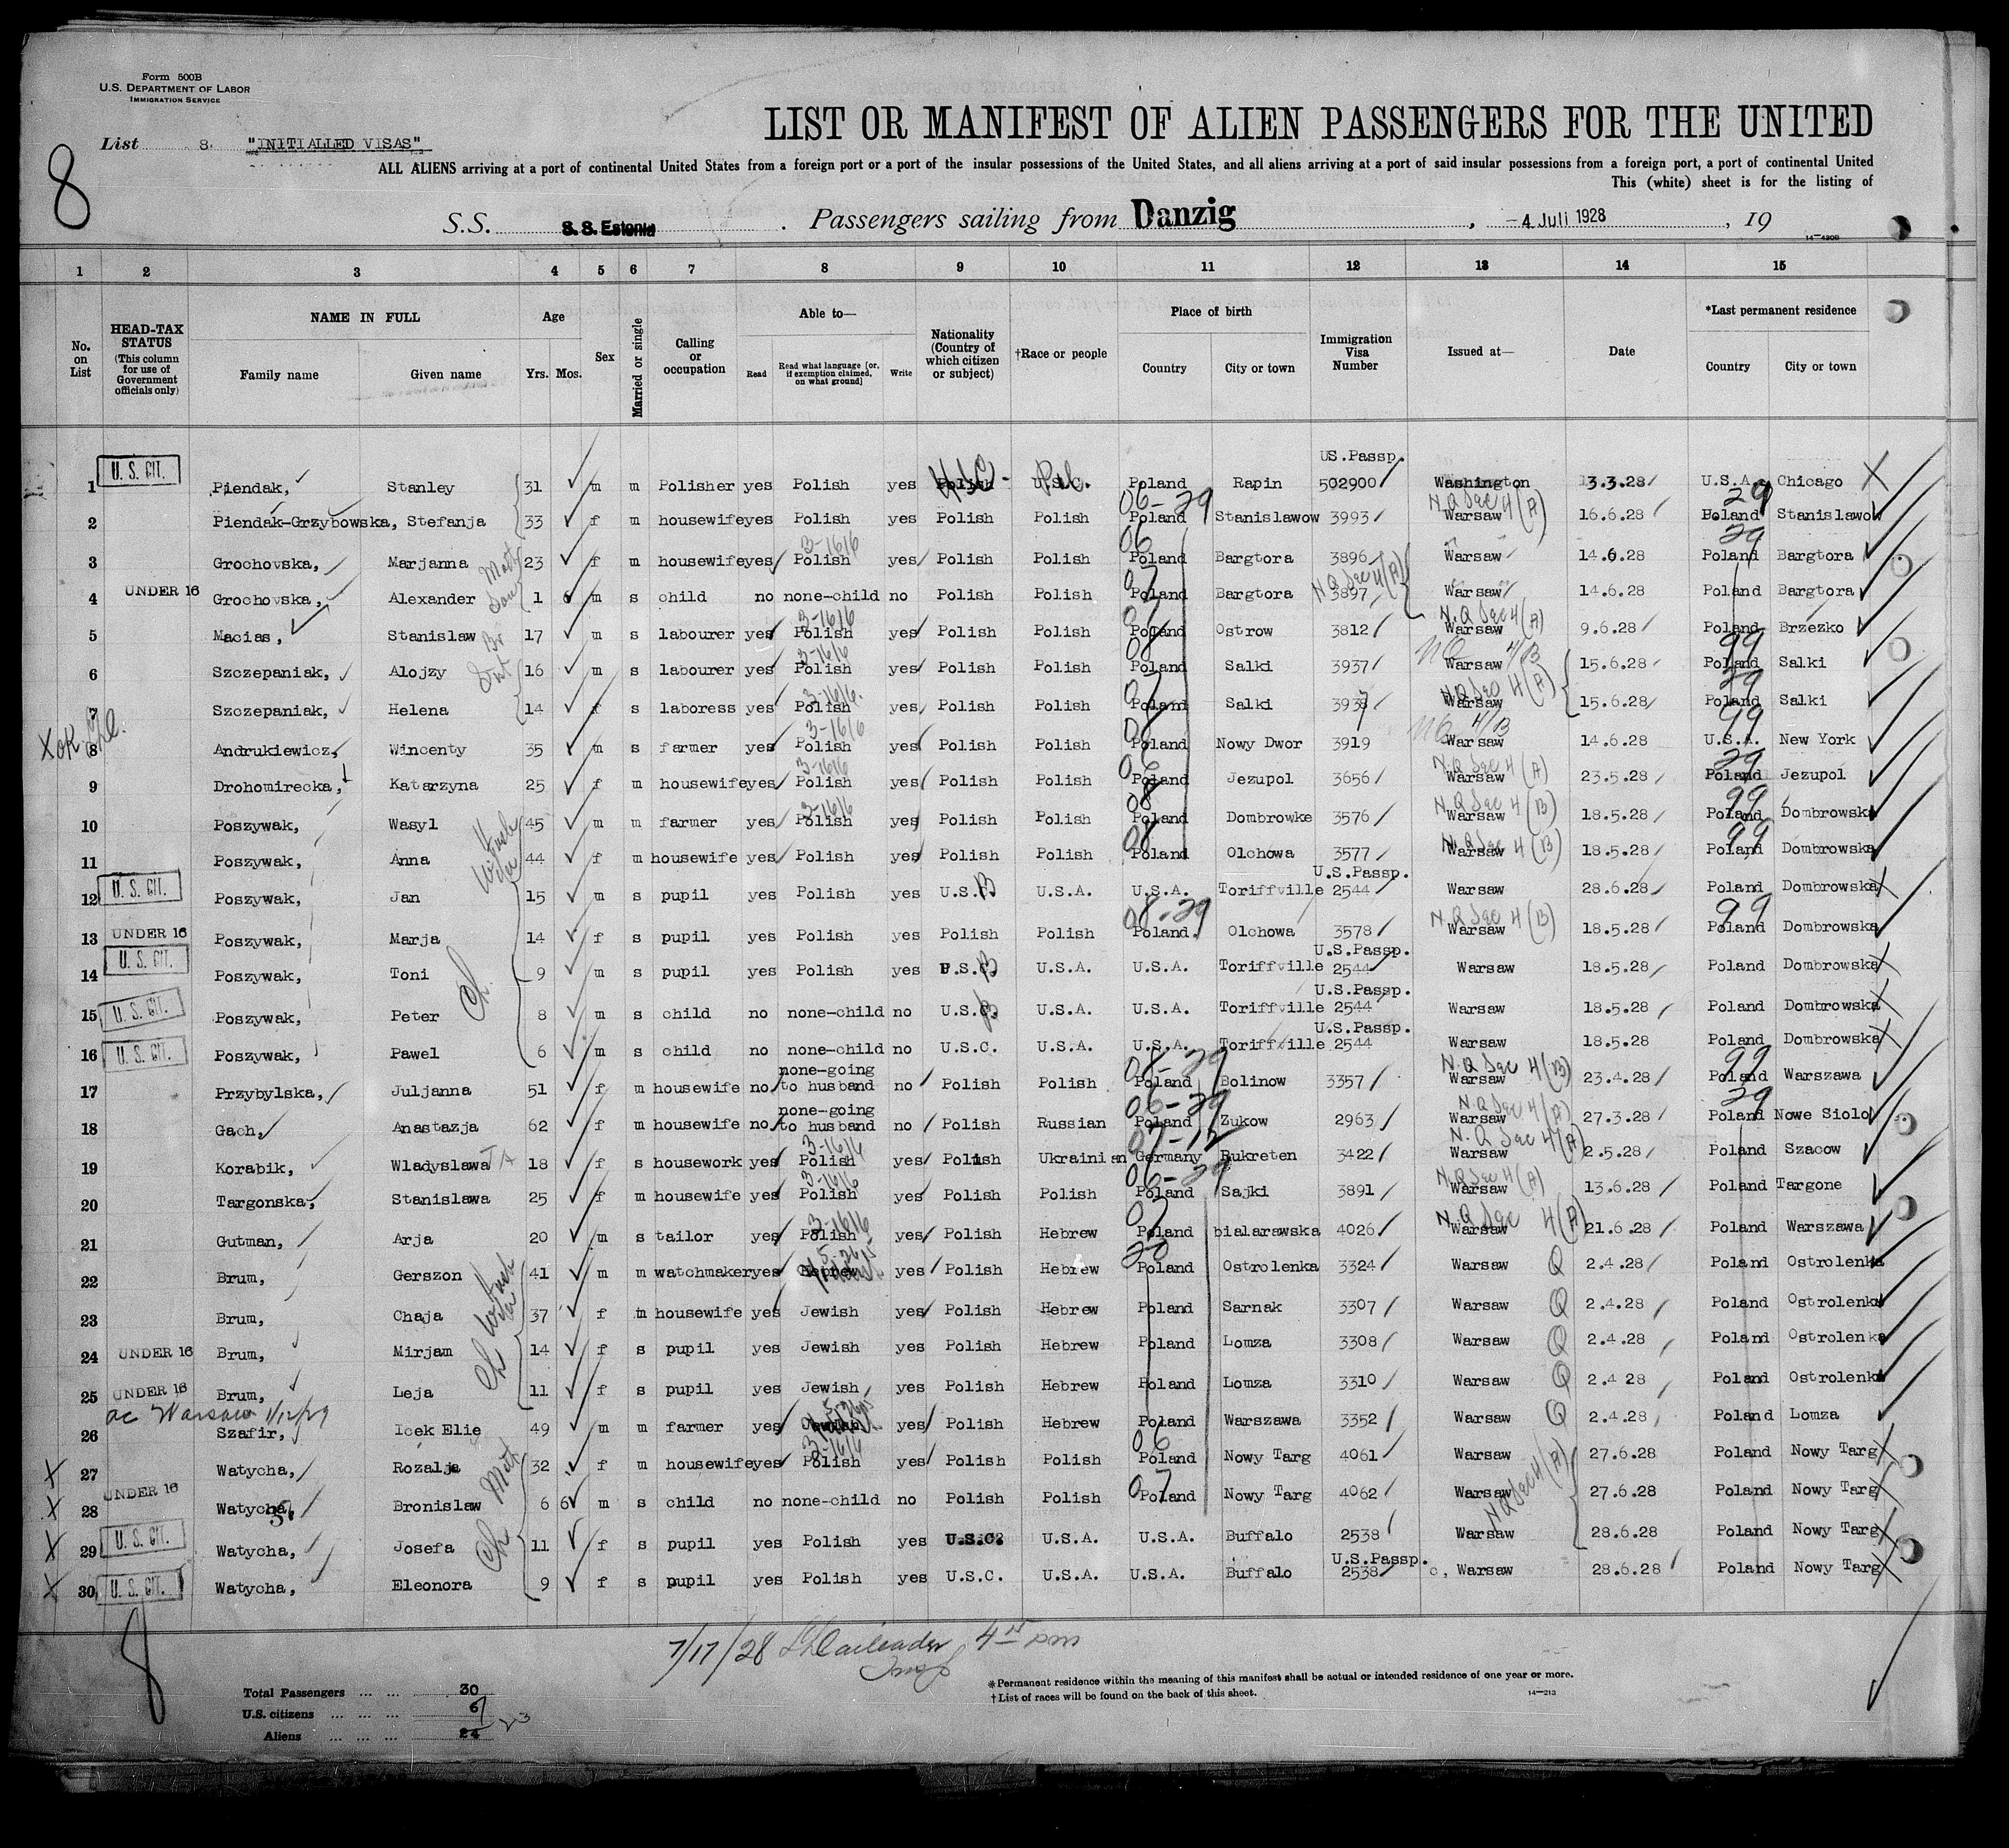 Form 500B
U.S. DEPARTMENT OF LABOR
IMMIGRATION SERVICE
LIST OR MANIFEST OF ALIEN PASSENGERS FOR THE UNITED
List 8. "INITIALLED VISAS"
8
ALL ALIENS arriving at a port of continental United States from a foreign port or a port of the insular possessions of the United States, and all aliens arriving at a port of said insular possessions from a foreign port, a port of continental United
This (white) sheet is for the listing of
S.S. S. S. Estonia. Passengers sailing from Danzig, -4 Juli 1928, 19
14—420B
1 2 3 4 5 6 7 8 9 10 11 12 13 14 15
No. on List
HEAD-TAX STATUS (This column for use of Government officials only)
NAME IN FULL Family name Given name
Age Yrs. Mos.
Sex
Married or single
Calling or occupation
Able to— Read Read what language [or, if exemption claimed, on what ground] Write
Nationality (Country of which citizen or subject)
†Race or people
Place of birth Country City or town
Immigration Visa Number
Issued at—
Date
*Last permanent residence Country City or town
1 U. S. CIT. Piendak, Stanley 31 m m Polisher yes Polish yes USC U.S.C. Pol. Poland Rapin US.Passp. 502900 Washington 13.3.28 U.S.A. Chicago X
2 Piendak-Grzybowska, Stefanja 33 f m housewife yes Polish yes Polish Polish 06-29 Poland Stanislawow 3993 N.Q Sec 4(A) Warsaw 16.6.28 29 Poland Stanislawow
3 Grochovska, Marjanna 23 f m housewife yes 3-1616 Polish yes Polish Polish 06 Poland Bargtora 3896 Warsaw 14.6.28 29 Poland Bargtora
4 UNDER 16 Grochovska, Alexander 1 6 m s child no none-child no Polish Polish 07 Poland Bargtora N Q Sec 4(A) 3897 Warsaw 14.6.28 Poland Bargtora
5 Macias, Stanislaw 17 m s labourer yes 3-1616 Polish yes Polish Polish Poland Ostrow 3812 N.Q Sec 4(A) Warsaw 9.6.28 Poland Brzezko
6 Szczepaniak, Alojzy 16 m s labourer yes 3-1616 Polish yes Polish Polish Poland Salki 3937 NQ 4/B Warsaw 15.6.28 99 Poland Salki
7 Szczepaniak, Helena 14 f s laboress yes 3-1616 Polish yes Polish Polish 07 Poland Salki 3938 N.Q Sec 4(A) Warsaw 15.6.28 29 Poland Salki
X OK 8 Andrukiewicz, Wincenty 35 m s farmer yes 3-1616 Polish yes Polish Polish Poland Nowy Dwor 3919 NQ 4/B Warsaw 14.6.28 99 U.S.A. New York
9 Drohomirecka, Katarzyna 25 f m housewife yes 3-1616 Polish yes Polish Polish 06 Poland Jezupol 3656 N.Q Sec 4(A) Warsaw 23.5.28 29 Poland Jezupol
10 Poszywak, Wasyl 45 m m farmer yes 3-1616 Polish yes Polish Polish 08 Poland Dombrowke 3576 N.Q Sec 4(B) Warsaw 18.5.28 99 Poland Dombrowska
11 Poszywak, Anna 44 f m housewife yes Polish yes Polish Polish 08 Poland Olchowa 3577 N.Q Sec 4(B) Warsaw 18.5.28 99 Poland Dombrowska
12 U. S. CIT. Poszywak, Jan 15 m s pupil yes Polish yes U.S.B U.S.A. U.S.A. Toriffville U.S.Passp. 2544 Warsaw 28.6.28 Poland Dombrowska X
13 UNDER 16 Poszywak, Marja 14 f s pupil yes Polish yes Polish Polish 08-29 Poland. Olchowa 3578 N.Q Sec 4(B) Warsaw 18.5.28 99 Poland Dombrowska
14 U. S. CIT. Poszywak, Toni 9 m s pupil yes Polish yes U.S.B U.S.A. U.S.A. Toriffville U.S.Passp. 2544 Warsaw 18.5.28 Poland Dombrowska X
15 U. S. CIT. Poszywak, Peter 8 m s child no none-child no U.S.C. U.S.A. U.S.A. Toriffville U.S.Passp. 2544 Warsaw 18.5.28 Poland Dombrowska X
16 U. S. CIT. Poszywak, Pawel 6 m s child no none-child no U.S.C. U.S.A. U.S.A. Toriffville U.S.Passp. 2544 Warsaw 18.5.28 Poland Dombrowska X
17 Przybylska, Juljanna 51 f m housewife no none-going to husband no Polish Polish 08-29 Poland Bolinow 3357 N.Q Sec 4(B) Warsaw 23.4.28 99 Poland Warszawa
18 Gach, Anastazja 62 f m housewife no none-going to husband no Polish Russian 06-29 Poland Zukow 2963 N.Q Sec 4(A) Warsaw 27.3.28 29 Poland Nowe Siolo
19 Korabik, Wladyslawa 18 f s housework yes 3-1616 Polish yes Polish Ukrainian 07-12 Germany Rukreten 3422 N.Q Sec 4(A) Warsaw 2.5.28 Poland Szacow
20 Targonska, Stanislawa 25 f m housewife yes 3-1616 Polish yes Polish Polish 06-29 Poland Sajki 3891 N.Q Sec 4(A) Warsaw 13.6.28 Poland Targone
21 Gutman, Arja 20 m s tailor yes 3-1616 Polish yes Polish Hebrew 07 Poland bialarawska 4026 N.Q Sec 4(A) Warsaw 21.6.28 Poland Warszawa
22 Brum, Gerszon 41 m m watchmaker yes yes Polish Hebrew 20 Poland Ostrolenka 3324 Warsaw Q 2.4.28 Poland Ostrolenka
23 Brum, Chaja 37 f m housewife yes Jewish yes Polish Hebrew Poland Sarnak 3307 Warsaw Q 2.4.28 Poland Ostrolenka
24 UNDER 16 Brum, Mirjam 14 f s pupil yes Jewish yes Polish Hebrew Poland Lomza 3308 Warsaw Q 2.4.28 Poland Ostrolenka
25 UNDER 16 Brum, Leja 11 f s pupil yes Jewish yes Polish Hebrew Poland Lomza 3310 Warsaw Q 2.4 28 Poland Ostrolenka
ac Warsaw 1/12/29
26 Szafir, Icek Elie 49 m m farmer yes yes Polish Hebrew Poland Warszawa 3352 Warsaw Q 2.4.28 Poland Lomza
X 27 Watycha, Rozalja 32 f m housewife yes 3-1616 Polish yes Polish Polish 06 Poland Nowy Targ 4061 Warsaw 27.6.28 Poland Nowy Targ X
X 28 UNDER 16 Watycha, Bronislaw 6 6 m s child no none-child no Polish Polish 07 Poland Nowy Targ 4062 N Q Sec 4(A) Warsaw 27.6.28 Poland Nowy Targ X
X 29 U. S. CIT. Watycha, Josefa 11 f s pupil yes Polish yes U.S.C. U.S.A. U.S.A. Buffalo 2538 Warsaw 28.6.28 Poland Nowy Targ X
X 30 U. S. CIT. Watycha, Eleonora 9 f s pupil yes Polish yes U.S.C. U.S.A. U.S.A. Buffalo U.S.Passp. 2538 Warsaw 28.6.28 Poland Nowy Targ X
8
7/17/28
*Permanent residence within the meaning of this manifest shall be actual or intended residence of one year or more.
†List of races will be found on the back of this sheet.
14—213
Total Passengers ... ... 30
U.S. citizens ... ... ... 67
Aliens ... ... ... 24 23